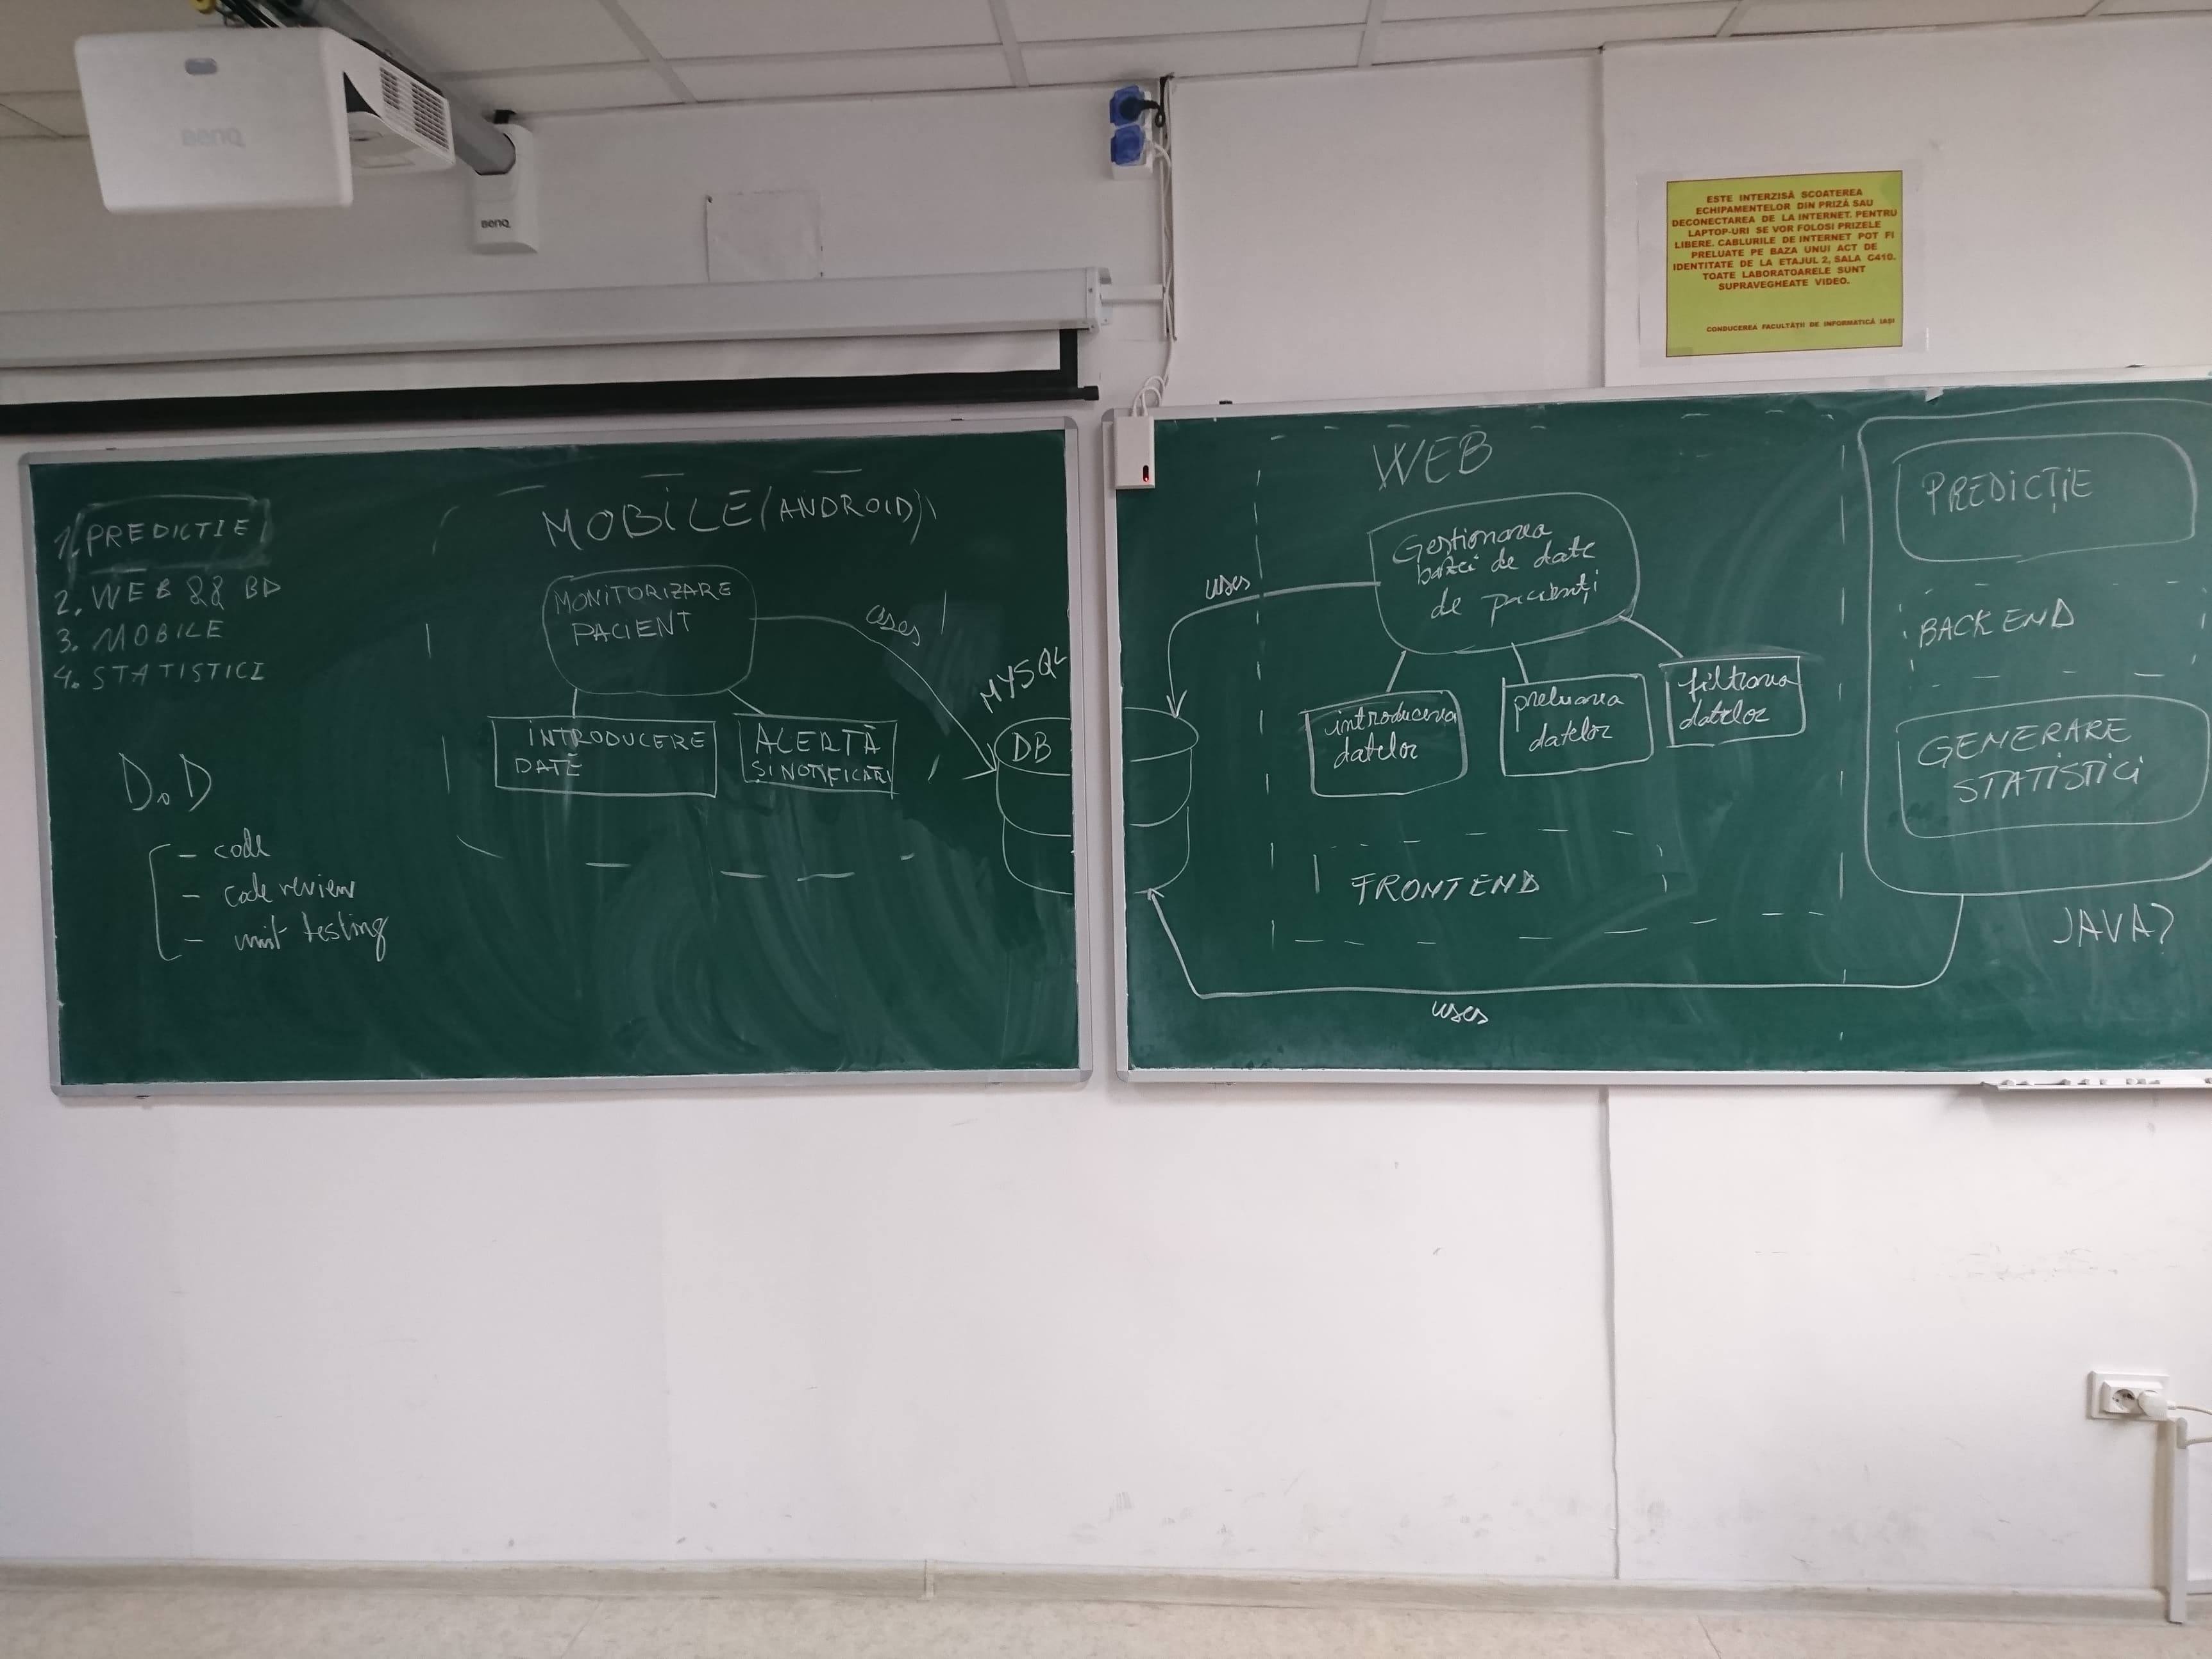 BENQ
BENQ
ESTE INTERZISĂ SCOATEREA
ECHIPAMENTELOR DIN PRIZĂ SAU
DECONECTAREA DE LA INTERNET. PENTRU
LAPTOP-URI SE VOR FOLOSI PRIZELE
LIBERE. CABLURILE DE INTERNET POT FI
PRELUATE PE BAZA UNUI ACT DE
IDENTITATE DE LA ETAJUL 2, SALA C410.
TOATE LABORATOARELE SUNT
SUPRAVEGHEATE VIDEO.
CONDUCEREA FACULTĂȚII DE INFORMATICĂ IAȘI
1. PREDICTIE
2. WEB && BD
3. MOBILE
4. STATISTICI
DoD
- code
- code review
- unit testing
MOBILE (ANDROID)
MONITORIZARE
PACIENT
INTRODUCERE
DATE
ALERTĂ
ȘI NOTIFICĂRI
uses
MYSQL
DB
WEB
Gestionarea
bazei de date
de pacienți
uses
introducerea
datelor
preluarea
datelor
filtrarea
datelor
FRONTEND
uses
PREDICȚIE
BACKEND
GENERARE
STATISTICI
JAVA?